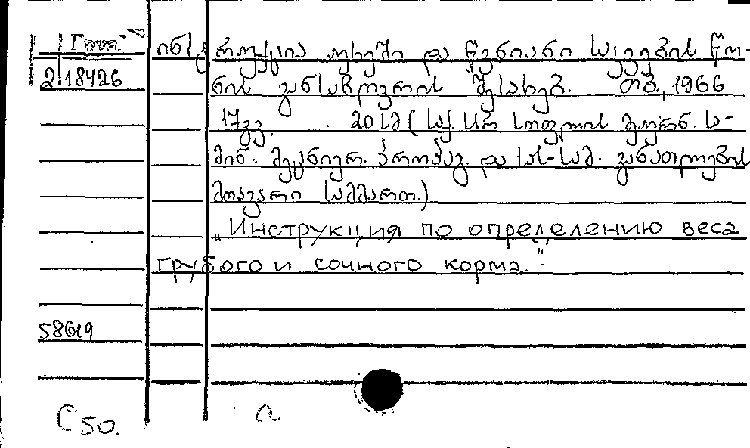 ინსტრუქცია უხეში და წვნიანი საკვების წო-
2|18426
ნის განსაზღვრის შესახებ. თბ, 1966
17გვ. 20სმ (საქ. სსრ სოფლის მეურნ. სა-
მინ. მეცნიერ. პროპაგ. და სას-სამ. განათლების
მთავარი სამმართ.)
„Инструкция по определению веса
грубого и сочного корма."
58619
C 50. ი